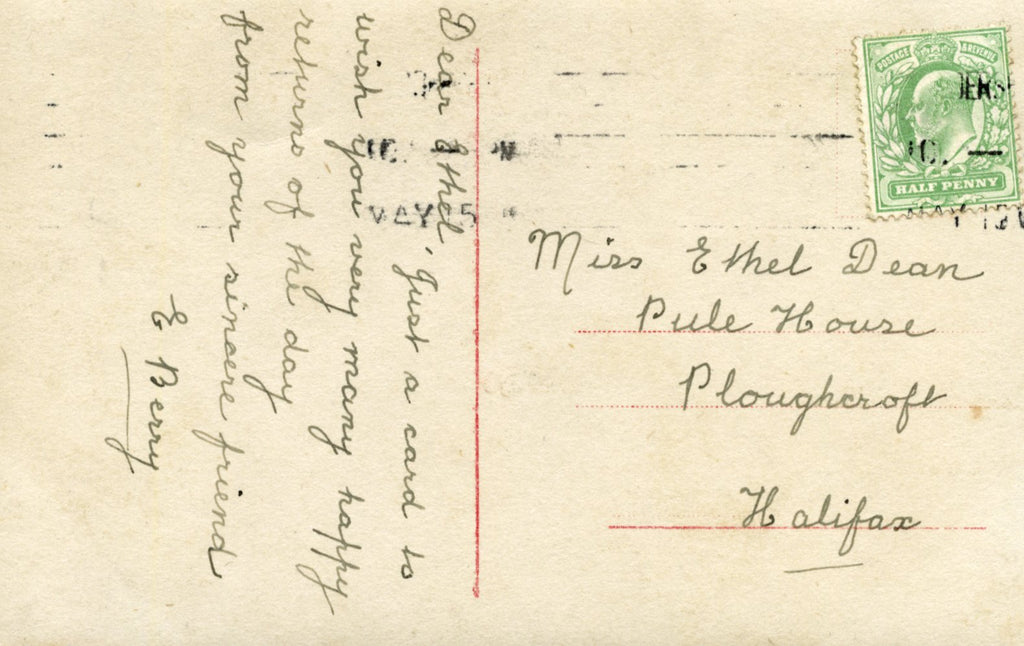 Dear Ethel, Just a card to
wish you very many happy
returns of the day
from your sincere friend
E Berry
POSTAGE & REVENUE
HALF PENNY
MAY 15
Miss Ethel Dean
Pule House
Ploughcroft
Halifax